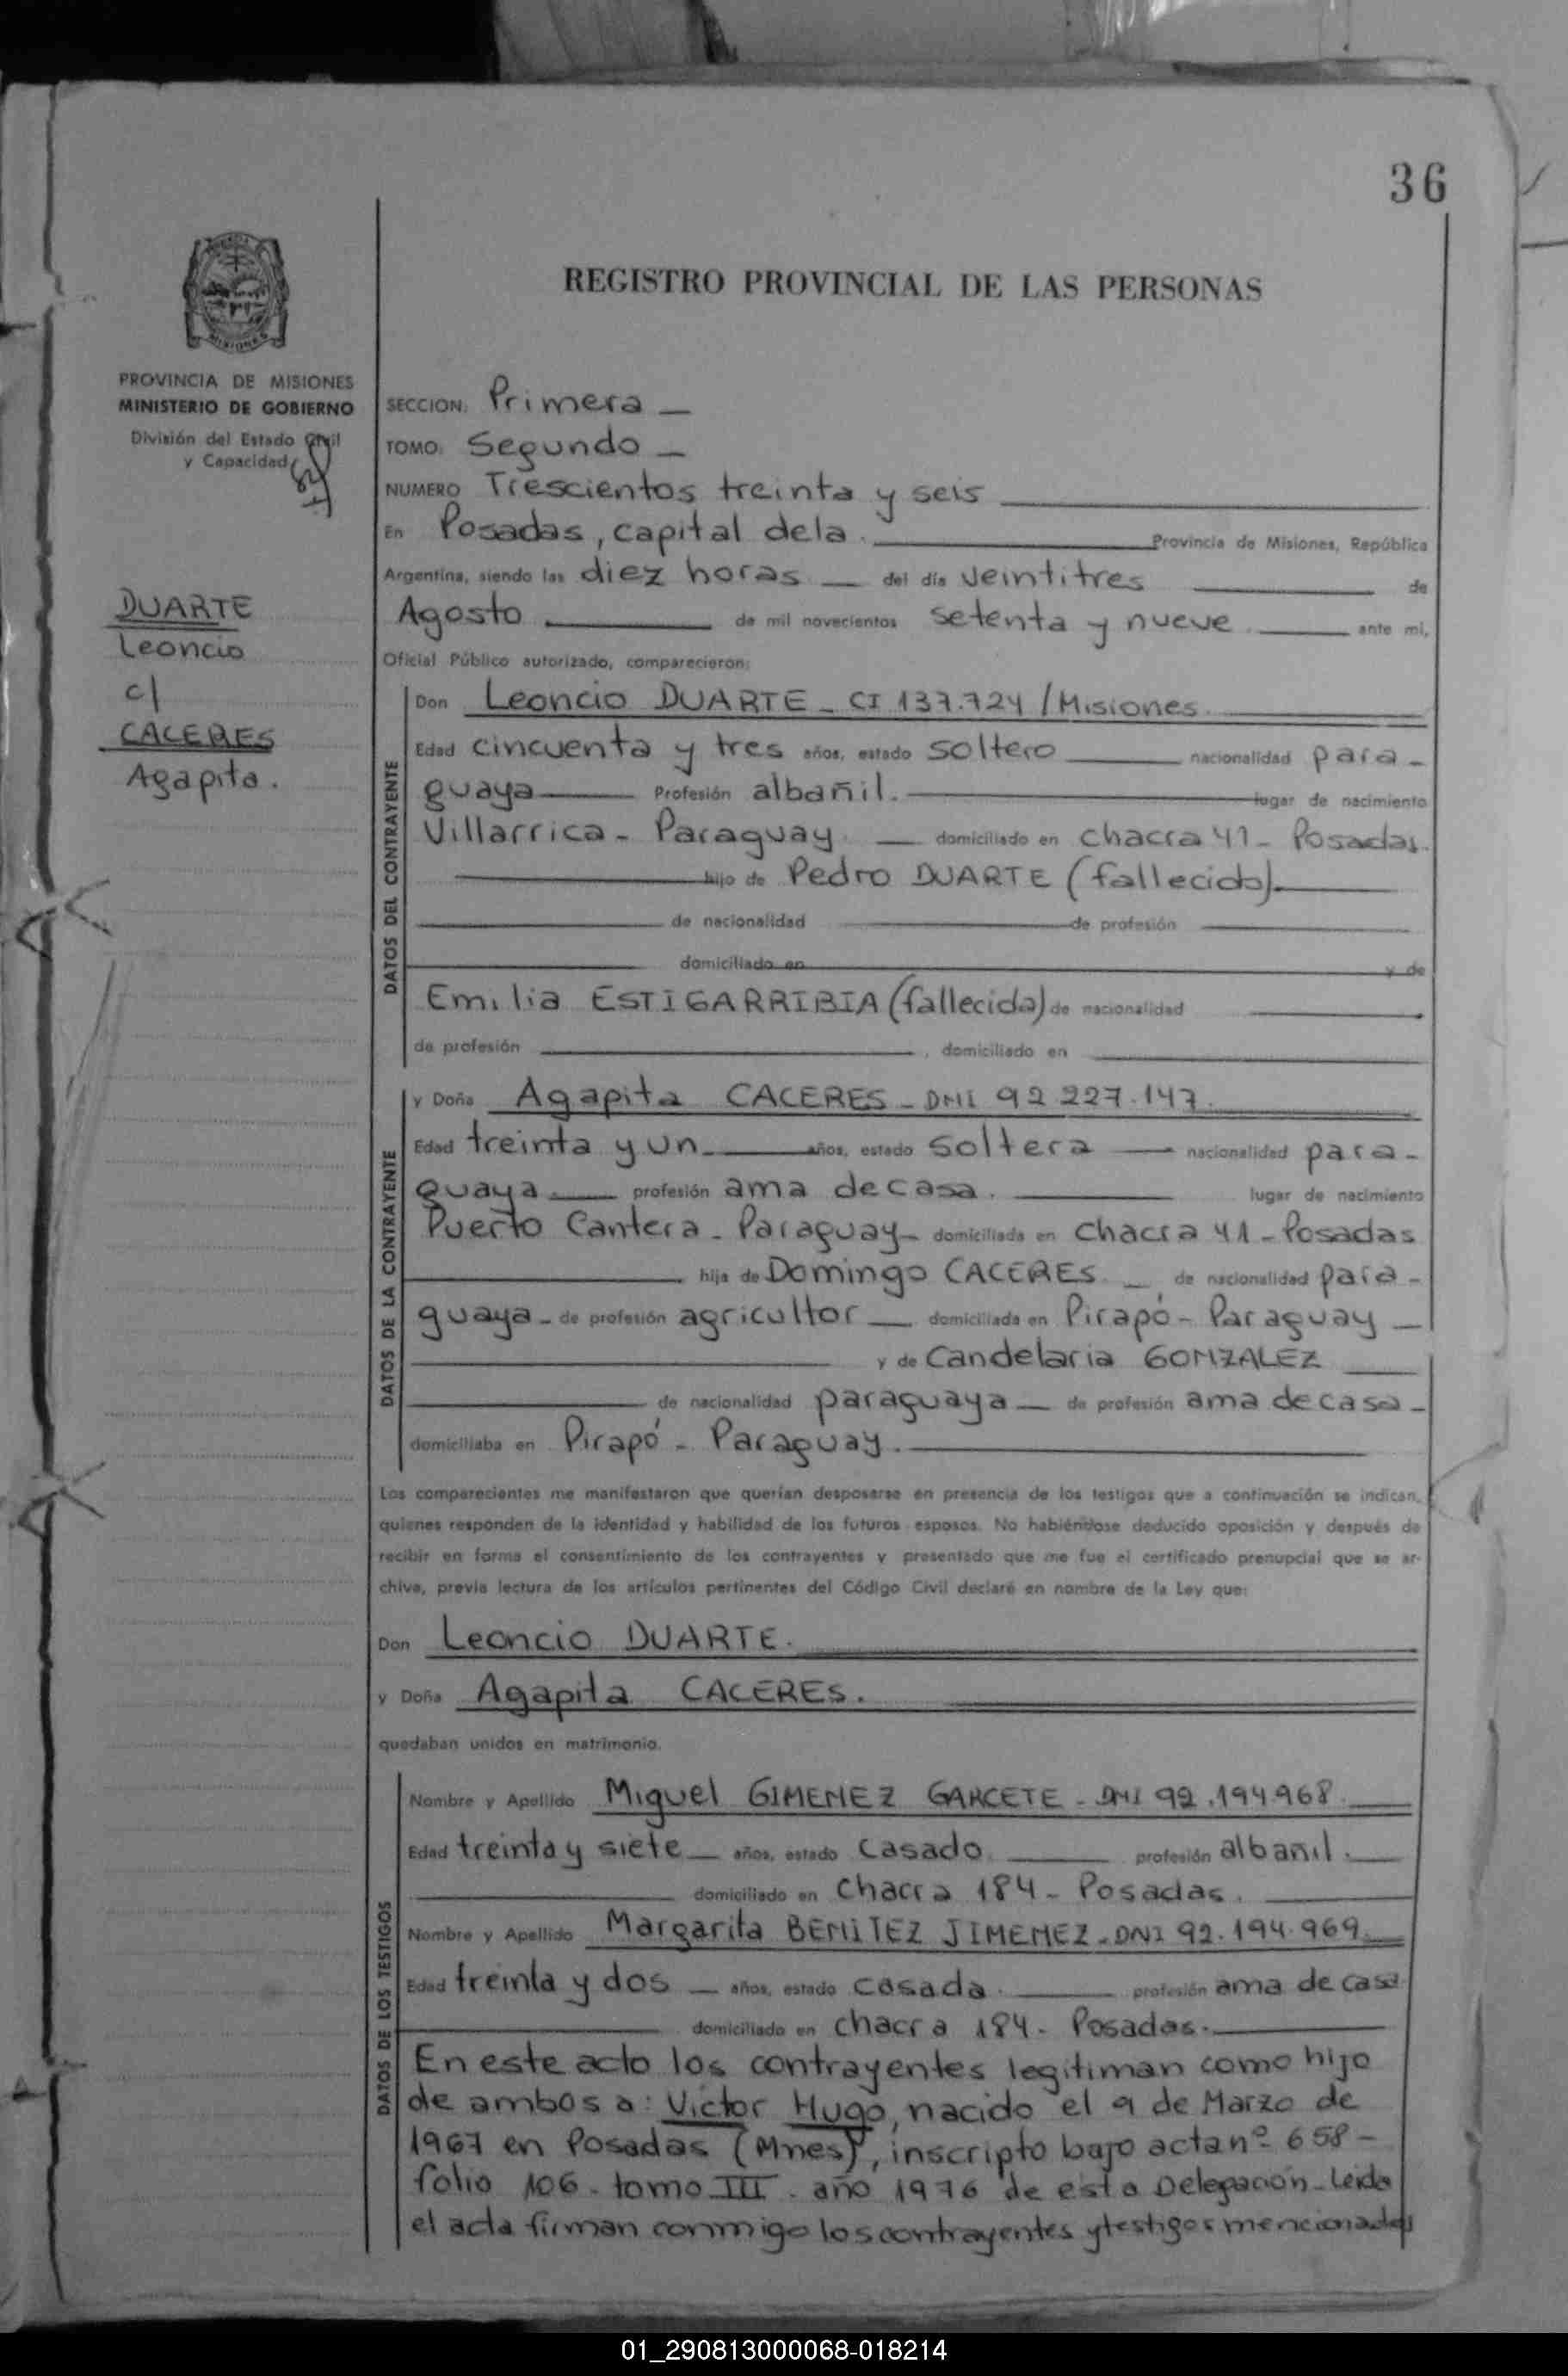 36
REGISTRO PROVINCIAL DE LAS PERSONAS
PROVINCIA DE MISIONES
MINISTERIO DE GOBIERNO
División del Estado Civil
y Capacidad
DUARTE
Leoncio
c/
CACERES
Agapita.
SECCION: Primera —
TOMO: Segundo —
NUMERO Trescientos treinta y seis
En Posadas, capital de la. Provincia de Misiones, República
Argentina, siendo las diez horas — del día veintitres de
Agosto de mil novecientos setenta y nueve. ante mi,
Oficial Público autorizado, comparecieron:
DATOS DEL CONTRAYENTE
Don Leoncio DUARTE - CI 137.724 / Misiones.
Edad cincuenta y tres años, estado soltero nacionalidad para-
guaya Profesión albañil. lugar de nacimiento
Villarrica - Paraguay. — domiciliado en chacra 41 - Posadas.
hijo de Pedro DUARTE (fallecido).
de nacionalidad de profesión
domiciliado en y de
Emilia ESTIGARRIBIA (fallecida) de nacionalidad
de profesión , domiciliado en
DATOS DE LA CONTRAYENTE
y Doña Agapita CACERES - DNI 92.227.147.
Edad treinta y un años, estado soltera — nacionalidad para-
guaya profesión ama de casa. lugar de nacimiento
Puerto Cantera - Paraguay - domiciliada en chacra 41 - Posadas
hija de Domingo CACERES. — de nacionalidad para-
guaya - de profesión agricultor — domiciliada en Pirapó - Paraguay —
y de Candelaria GONZALEZ
de nacionalidad paraguaya — de profesión ama de casa -
domiciliaba en Pirapó - Paraguay.
Los comparecientes me manifestaron que querían desposarse en presencia de los testigos que a continuación se indican,
quienes responden de la identidad y habilidad de los futuros esposos. No habiéndose deducido oposición y después de
recibir en forma el consentimiento de los contrayentes y presentado que me fue el certificado prenupcial que se ar-
chiva, previa lectura de los artículos pertinentes del Código Civil declaré en nombre de la Ley que:
Don Leoncio DUARTE.
y Doña Agapita CACERES.
quedaban unidos en matrimonio.
DATOS DE LOS TESTIGOS
Nombre y Apellido Miguel GIMENEZ GARCETE - DNI 92.194.968.
Edad treinta y siete — años, estado casado. profesión albañil.
domiciliado en chacra 184 - Posadas.
Nombre y Apellido Margarita BENITEZ JIMENEZ - DNI 92.194.969.
Edad treinta y dos — años, estado casada. profesión ama de casa
domiciliado en chacra 184 - Posadas.
En este acto los contrayentes legitiman como hijo
de ambos a: Victor Hugo, nacido el 9 de Marzo de
1967 en Posadas (Mnes), inscripto bajo acta nº 658 -
folio 106 - tomo III - año 1976 de esta Delegación - Leida
el acta firman conmigo los contrayentes y testigos mencionados
01_290813000068-018214